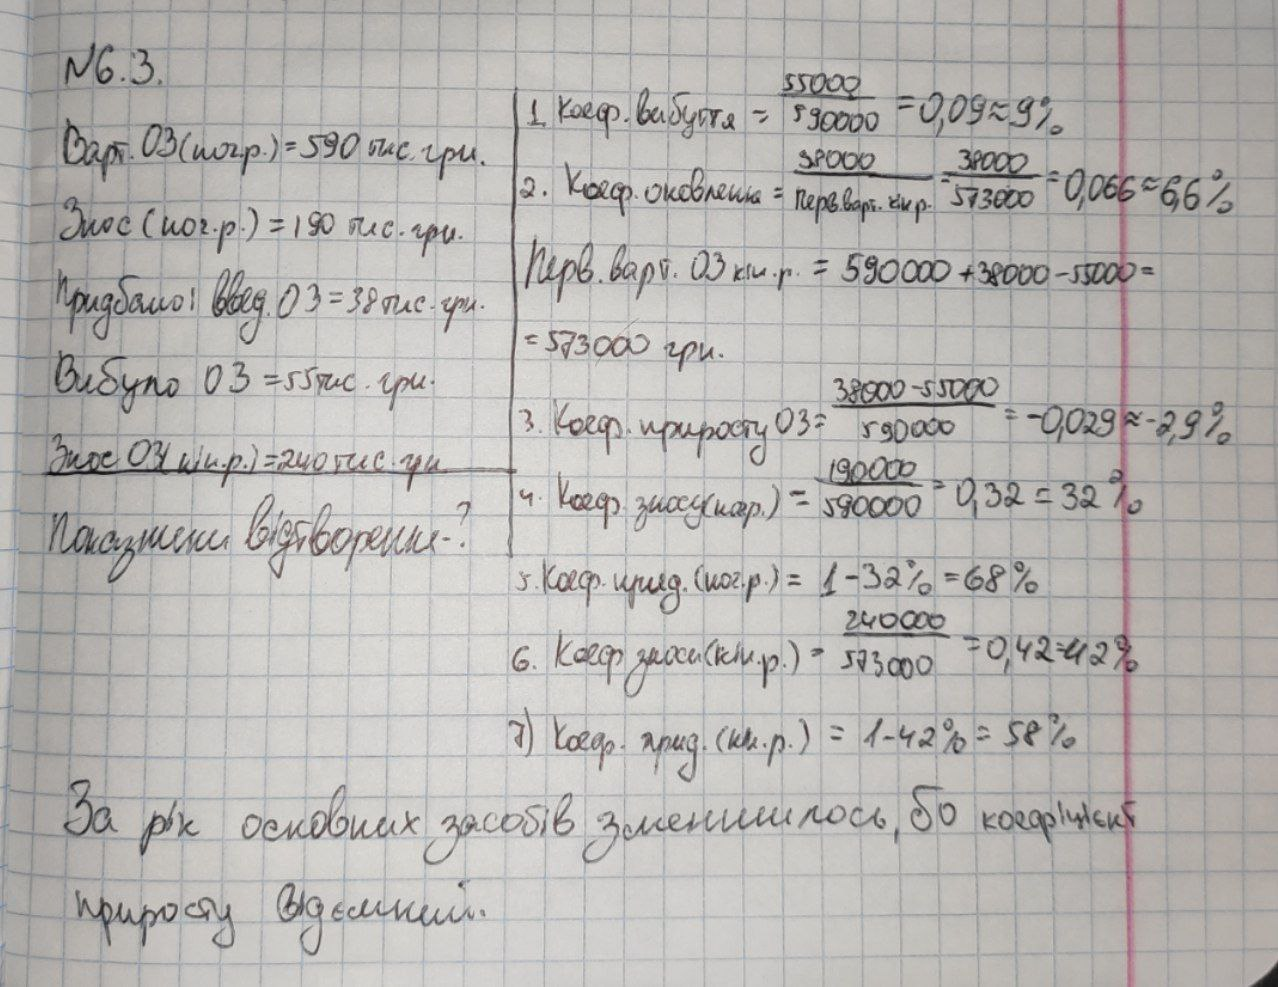 N6.3.
Варт. ОЗ (поч.р.) = 590 тис. грн.
Знос (поч.р.) = 190 тис. грн.
Придбано і введ. ОЗ = 38 тис. грн.
Вибуло ОЗ = 55 тис. грн.
Знос ОЗ (кін.р.) = 240 тис. грн
Показники відтворення - ?
1. Коеф. вибуття = 55000/590000 = 0,09 ≈ 9%
2. Коеф. оновлення = 38000/Перв. варт. к.н.р. = 38000/573000 = 0,066 ≈ 6,6%
Перв. варт. ОЗ кін.р. = 590000 + 38000 - 55000 =
= 573000 грн.
3. Коеф. приросту ОЗ = 38000-55000/590000 = -0,029 ≈ -2,9%
4. Коеф. зносу (поч.р.) = 190000/590000 = 0,32 = 32%
5. Коеф. прид. (поч.р.) = 1 - 32% = 68%
6. Коеф зноси (кін.р.) = 240000/573000 = 0,42 = 42%
7) Коеф. прид. (кін.р.) = 1 - 42% = 58%
За рік основних засобів зменшилось, бо коефіцієнт
приросту відємний.